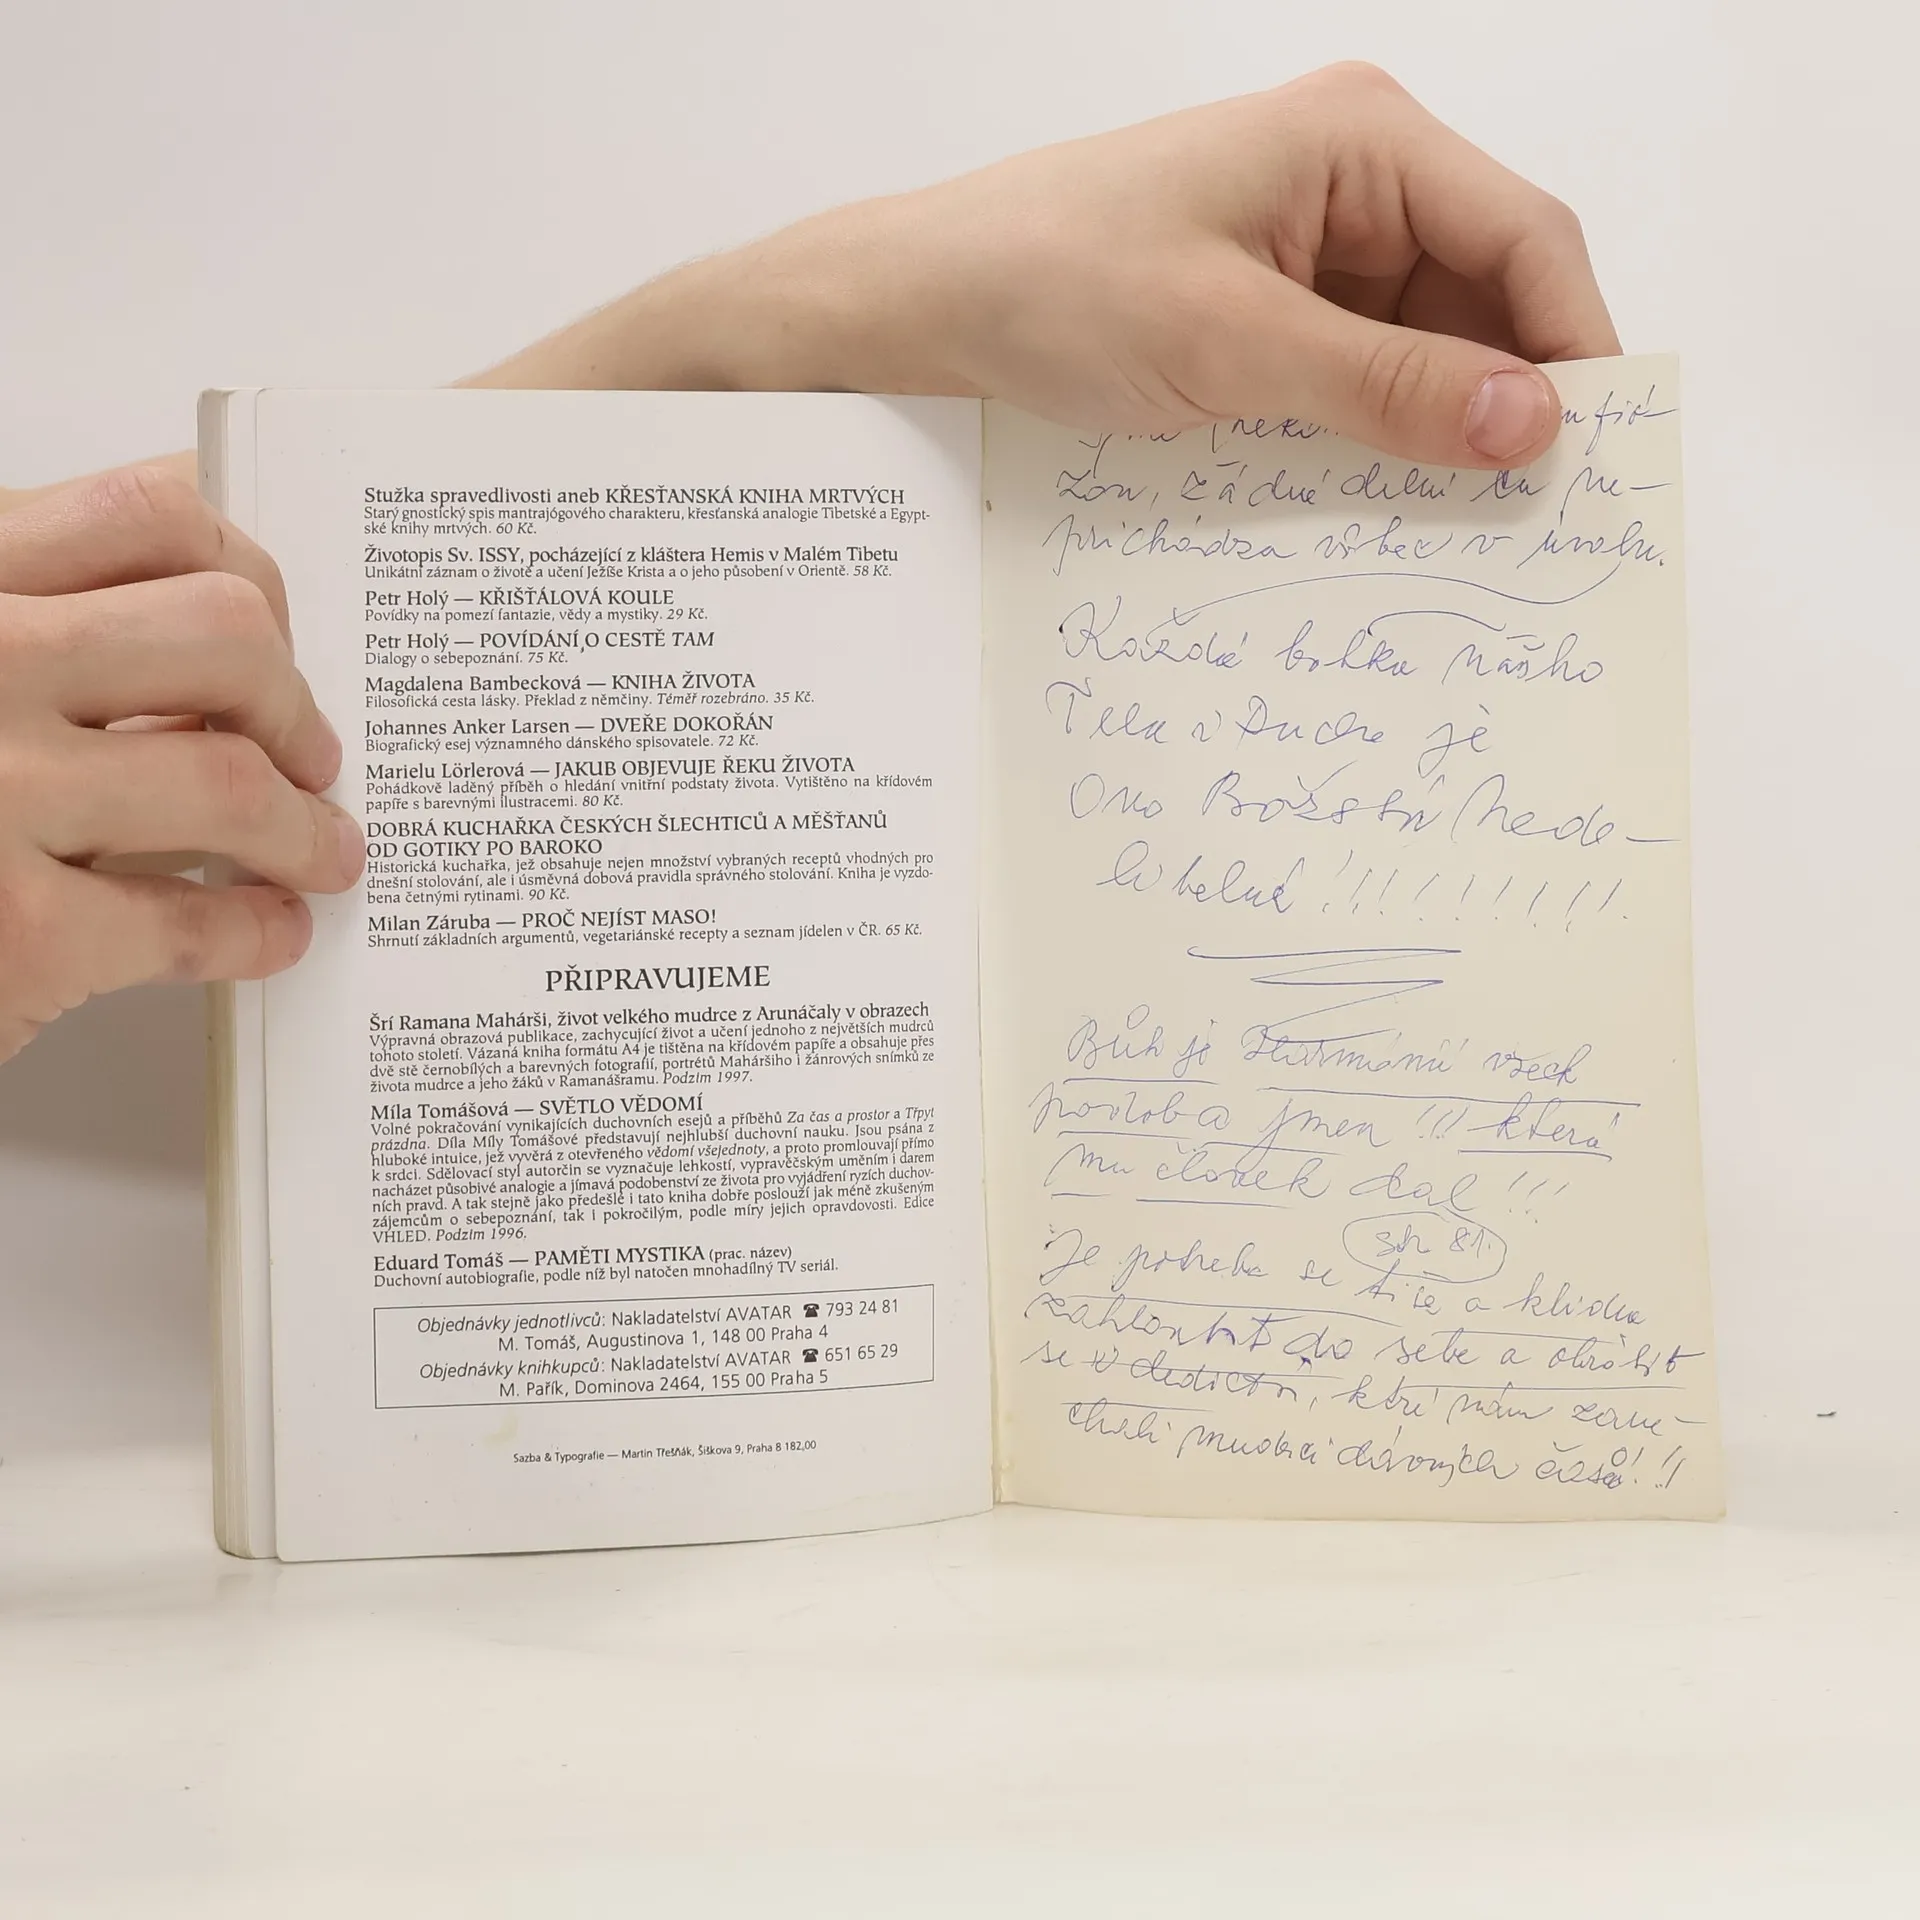 Stužka spravedlivosti aneb KŘESŤANSKÁ KNIHA MRTVÝCH
Starý gnostický spis mantrajógového charakteru, křesťanská analogie Tibetské a Egypt-
ské knihy mrtvých. 60 Kč.
Životopis Sv. ISSY, pocházející z kláštera Hemis v Malém Tibetu
Unikátní záznam o životě a učení Ježíše Krista a o jeho působení v Orientě. 58 Kč.
Petr Holý — KŘIŠŤÁLOVÁ KOULE
Povídky na pomezí fantazie, vědy a mystiky. 29 Kč.
Petr Holý — POVÍDÁNÍ O CESTĚ TAM
Dialogy o sebepoznání. 75 Kč.
Magdalena Bambecková — KNIHA ŽIVOTA
Filosofická cesta lásky. Překlad z němčiny. Téměř rozebráno. 35 Kč.
Johannes Anker Larsen — DVEŘE DOKOŘÁN
Biografický esej významného dánského spisovatele. 72 Kč.
Marielu Lörlerová — JAKUB OBJEVUJE ŘEKU ŽIVOTA
Pohádkově laděný příběh o hledání vnitřní podstaty života. Vytištěno na křídovém
papíře s barevnými ilustracemi. 80 Kč.
DOBRÁ KUCHAŘKA ČESKÝCH ŠLECHTICŮ A MĚŠŤANŮ
OD GOTIKY PO BAROKO
Historická kuchařka, jež obsahuje nejen množství vybraných receptů vhodných pro
dnešní stolování, ale i úsměvná dobová pravidla správného stolování. Kniha je vyzdo-
bena četnými rytinami. 90 Kč.
Milan Záruba — PROČ NEJÍST MASO!
Shrnutí základních argumentů, vegetariánské recepty a seznam jídelen v ČR. 65 Kč.
PŘIPRAVUJEME
Šrí Ramana Mahárši, život velkého mudrce z Arunáčaly v obrazech
Výpravná obrazová publikace, zachycující život a učení jednoho z největších mudrců
tohoto století. Vázaná kniha formátu A4 je tištěna na křídovém papíře a obsahuje přes
dvě stě černobílých a barevných fotografií, portrétů Maháršiho i žánrových snímků ze
života mudrce a jeho žáků v Ramanášramu. Podzim 1997.
Míla Tomášová — SVĚTLO VĚDOMÍ
Volné pokračování vynikajících duchovních esejů a příběhů Za čas a prostor a Třpyt
prázdna. Díla Míly Tomášové představují nejhlubší duchovní nauku. Jsou psána z
hluboké intuice, jež vyvěrá z otevřeného vědomí všejednoty, a proto promlouvají přímo
k srdci. Sdělovací styl autorčin se vyznačuje lehkostí, vypravěčským uměním i darem
nacházet působivé analogie a jímavá podobenství ze života pro vyjádření ryzích duchov-
ních pravd. A tak stejně jako předešlé i tato kniha dobře poslouží jak méně zkušeným
zájemcům o sebepoznání, tak i pokročilým, podle míry jejich opravdovosti. Edice
VHLED. Podzim 1996.
Eduard Tomáš — PAMĚTI MYSTIKA (prac. název)
Duchovní autobiografie, podle níž byl natočen mnohadílný TV seriál.
Objednávky jednotlivců: Nakladatelství AVATAR ☎ 793 24 81
M. Tomáš, Augustinova 1, 148 00 Praha 4
Objednávky knihkupců: Nakladatelství AVATAR ☎ 651 65 29
M. Pařík, Dominova 2464, 155 00 Praha 5
Sazba & Typografie — Martin Třešňák, Šiškova 9, Praha 8 182,00
zon, žádné delní tu ne-
prichádza vôbec v úvahu.
Každá bolka nášho
Tela v Duchu je
Ono Božství Nede-
litelné !!!!!!!!!
Bůh je všech
podob a jmen !!! která
mu člověk dal !!!
str 81.
Je potreba se tiše a klidně
zahloubit do sebe a obrátit
se k dedictví, ktré nám zane-
chali mudrci dávných časů! !!